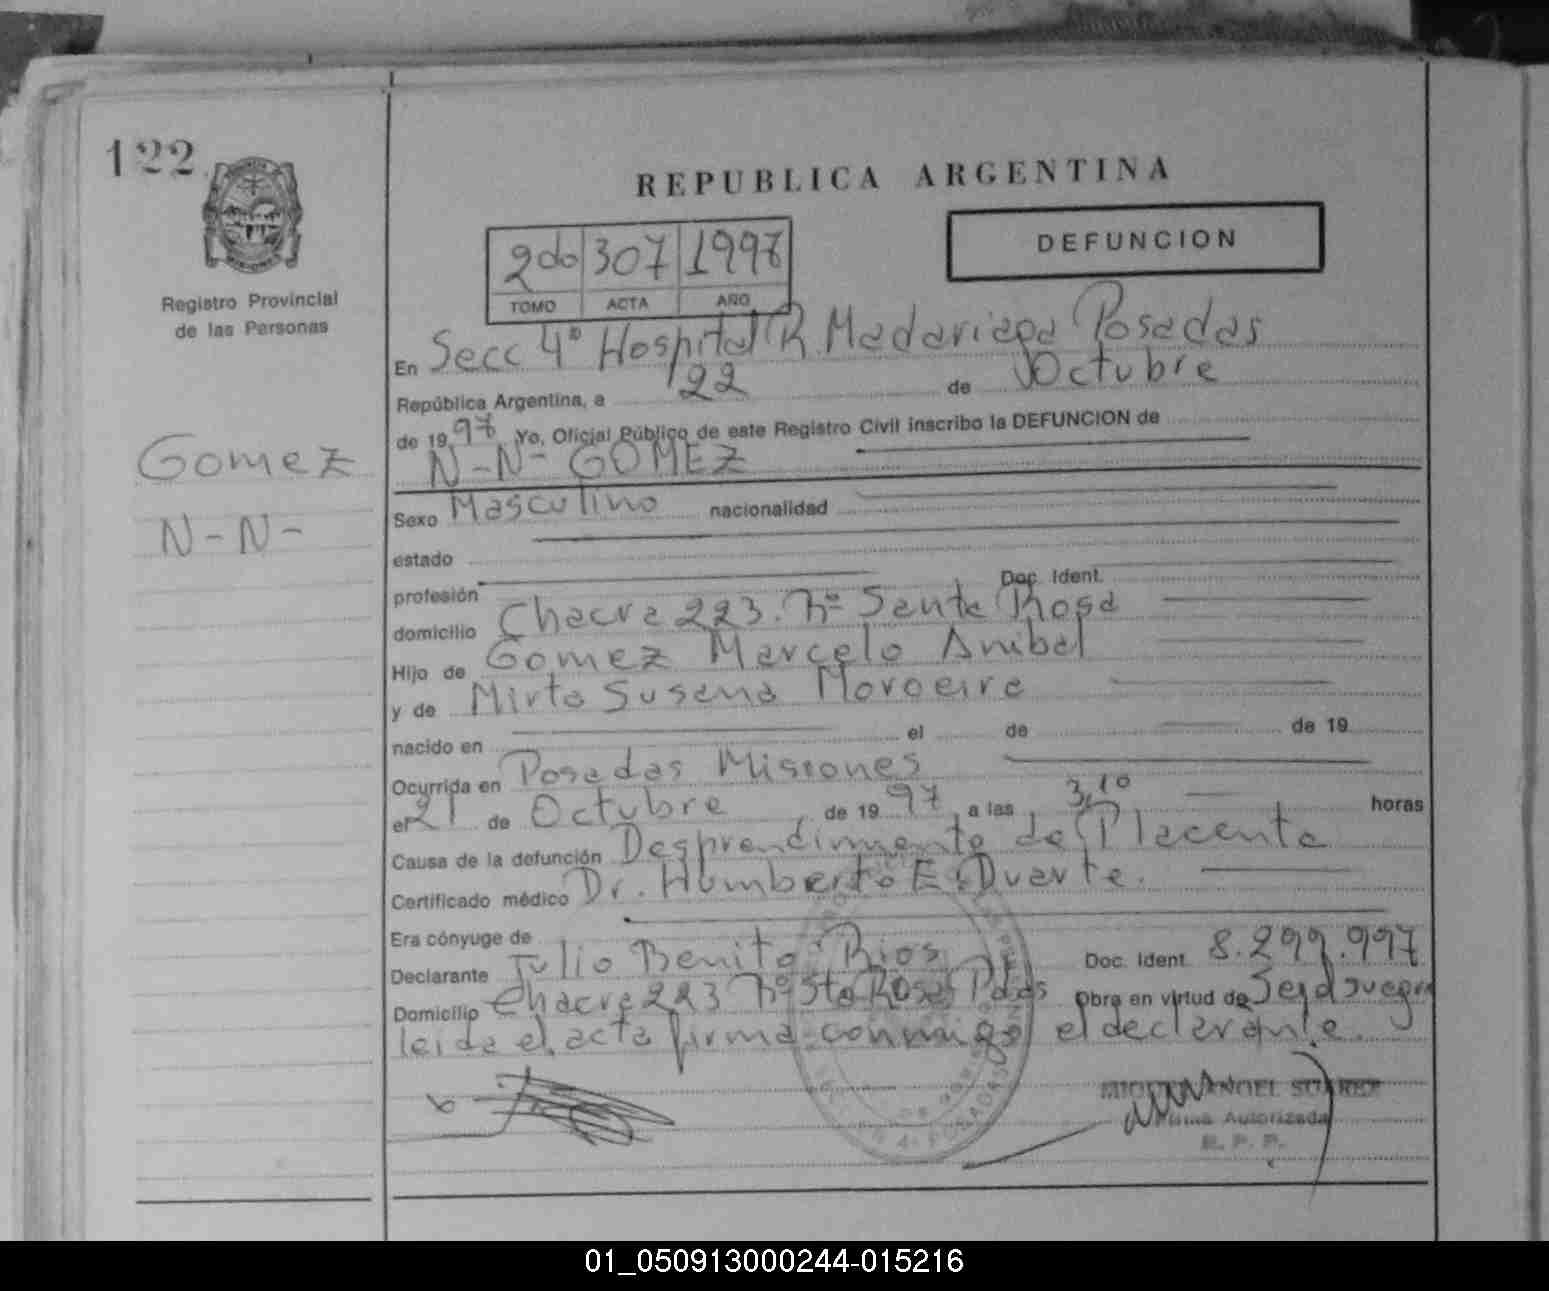 122
REPUBLICA ARGENTINA
2do 307 1997
TOMO ACTA AÑO
DEFUNCION
Registro Provincial
de las Personas
En Secc 4ª Hospital R. Madariaga Posadas
República Argentina, a 22 de Octubre
de 1997 Yo, Oficial Público de este Registro Civil inscribo la DEFUNCION de
N-N- GOMEZ
Gomez
N-N-
Sexo Masculino nacionalidad
estado
profesión Doc. Ident.
domicilio Chacra 223. Nº Santa Rosa
Hijo de Gomez Marcelo Anibal
y de Mirta Susana
nacido en el de de 19
Ocurrida en Posadas Misiones
el 21 de Octubre de 1997 a las 3,10 horas
Causa de la defunción Desprendimiento de Placenta
Certificado médico Dr. Humberto E. Duarte.
Era cónyuge de
Declarante Julio Benito Rios Doc. Ident. 8.299.997
Domicilio Chacra 223 Nº Sta Rosa Pdas Obra en virtud de
leida el acta firma conmigo el declarante.
MIGUEL ANGEL SUAREZ
Firma Autorizada
R. P. P.
01_050913000244-015216